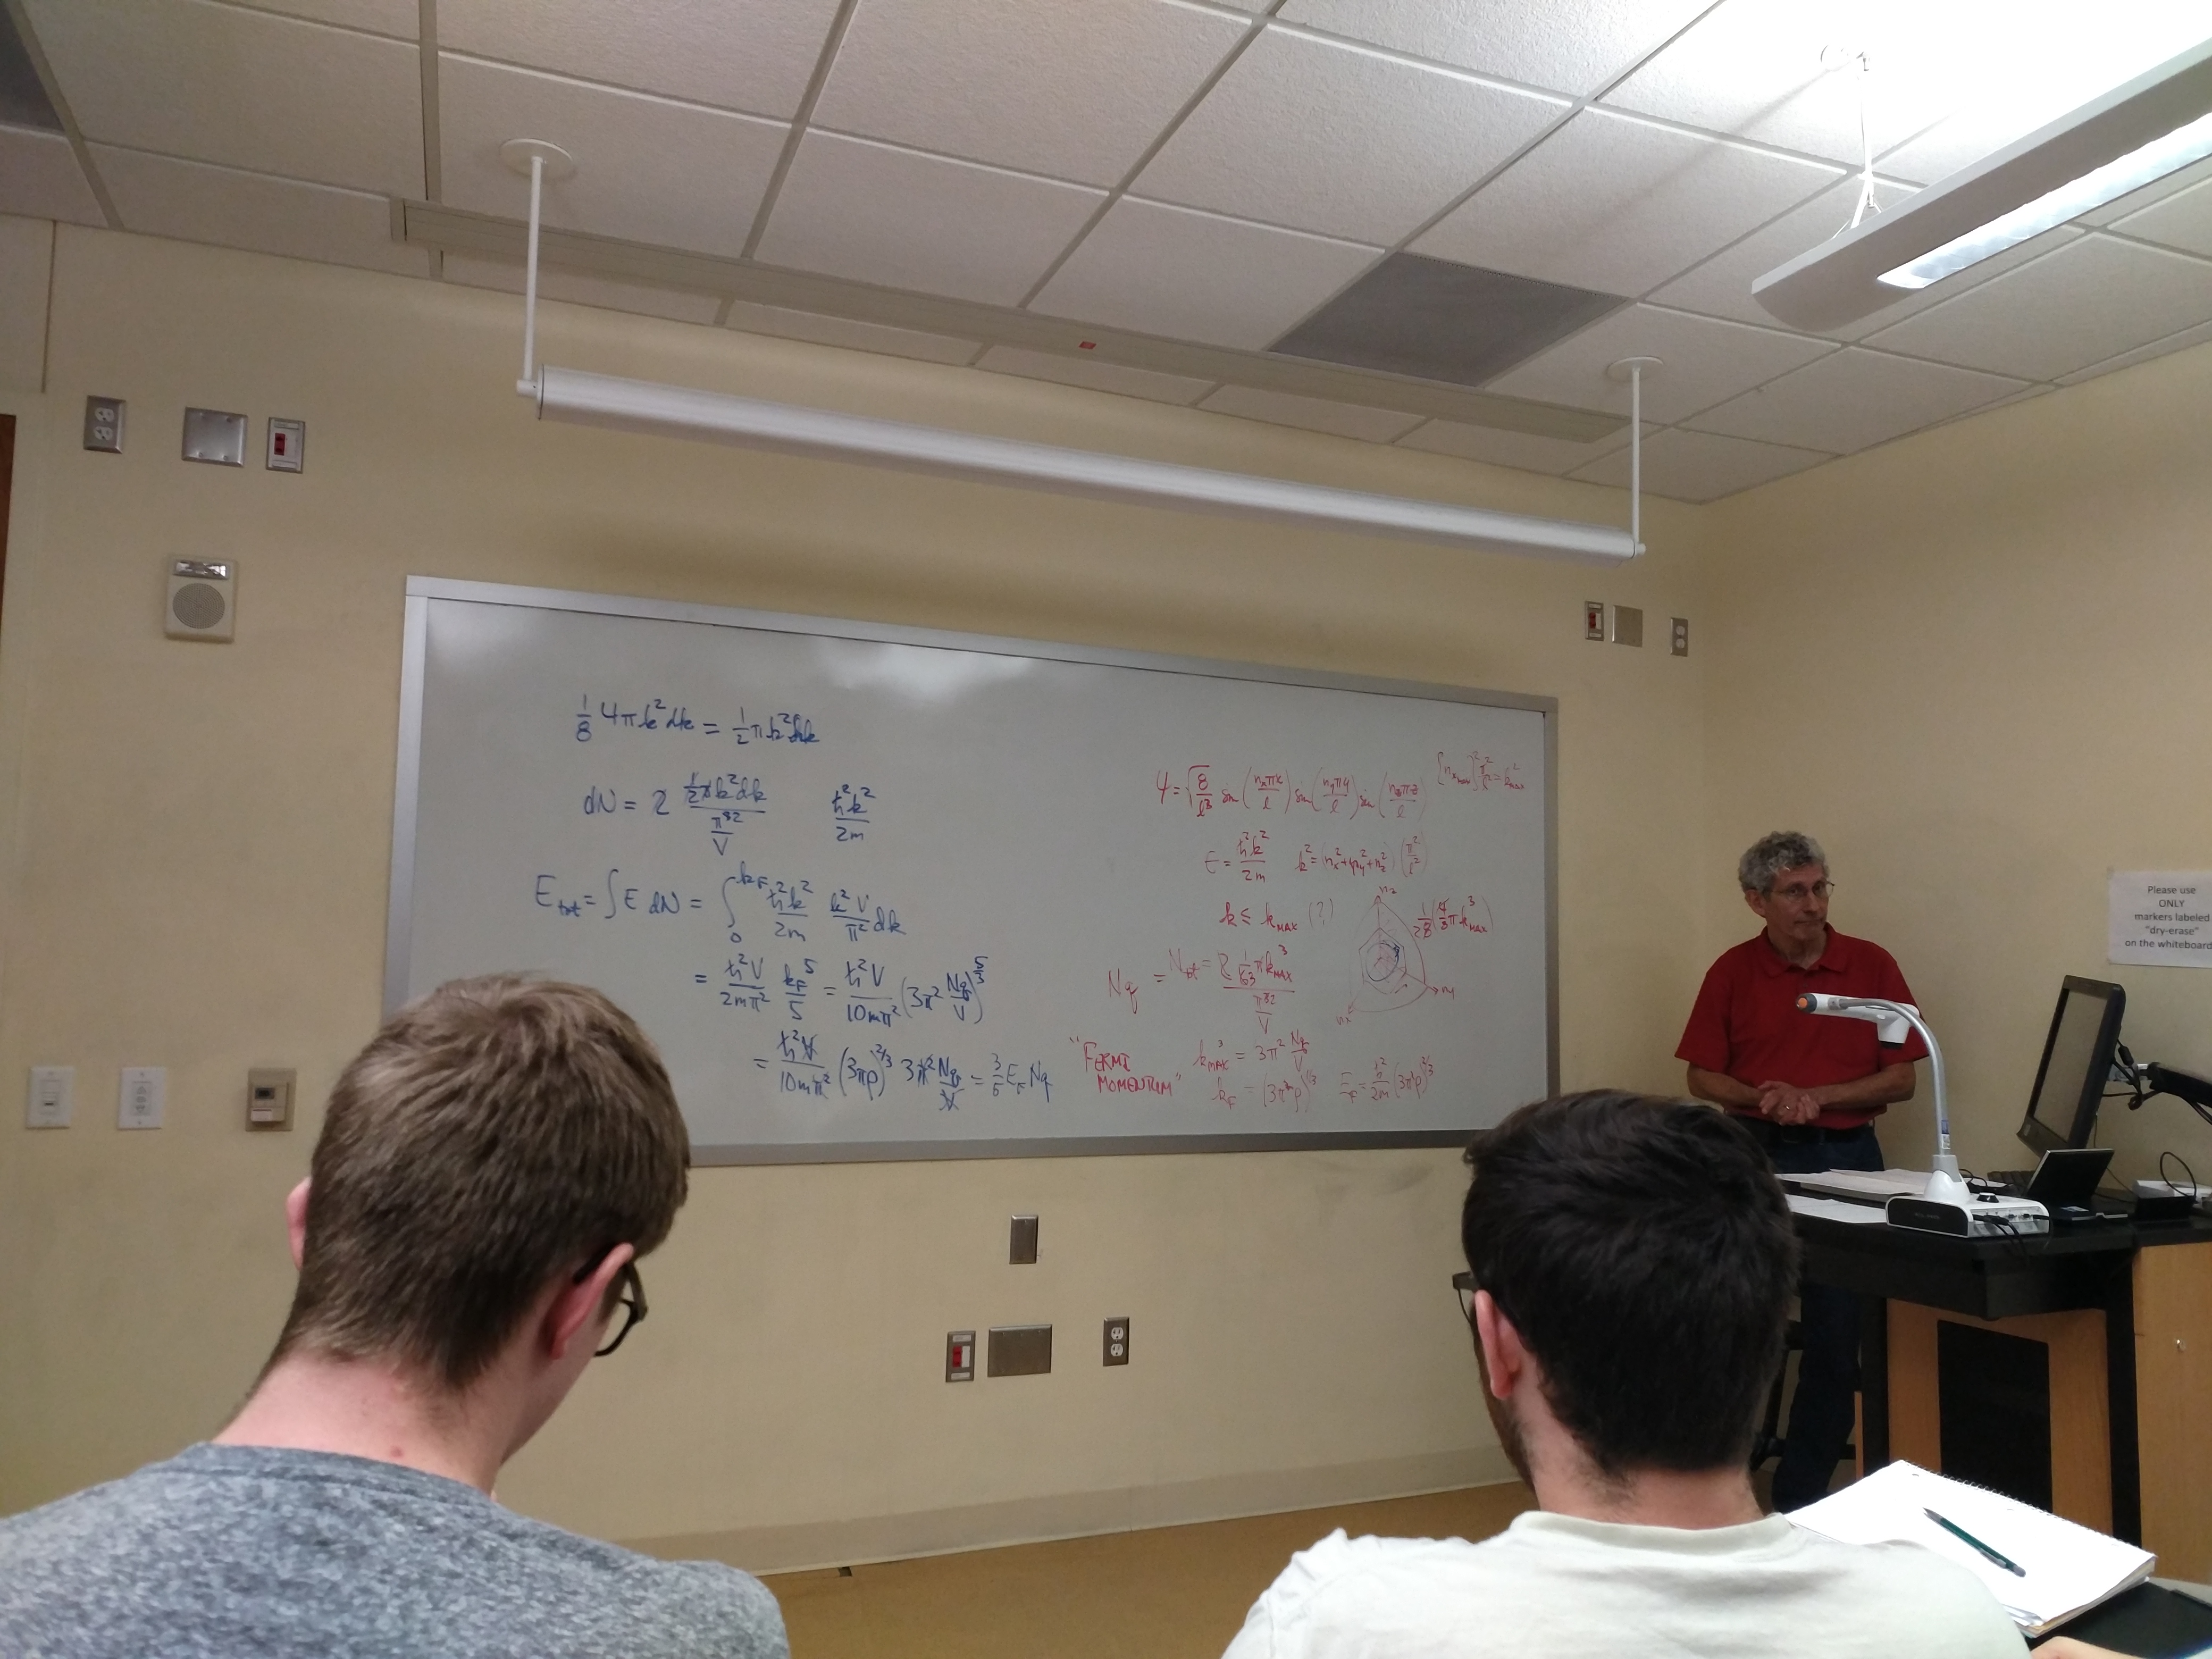 1/8 4πk²dk = 1/2 πk²dk
dN = 2 (1/2 πk²dk)/(π³²/V)   ħ²k²/2m
E_tot = ∫E dN = ∫₀^{k_F} ħ²k²/2m k²V/π² dk
= ħ²V/2mπ² k_F⁵/5 = ħ²V/10mπ² (3π² Nq/V)^{5/3}
= ħ²V/10mπ² (3πρ)^{2/3} 3π² Nq/V = 3/5 E_F Nq
ψ = √(8/l³) sin(n_xπx/l) sin(n_yπy/l) sin(n_zπz/l)
[n_{x max}]² π²/l² = k²_max
E = ħ²k²/2m   k² = (n_x² + n_y² + n_z²)(π²/l²)
k ≤ k_MAX (?)
1/8 (4/3 πk³_MAX)
n_z
n_y
n_x
Nq = N_tot = 2 1/63 πk³_MAX/(π³²/V)
"FERMI MOMENTUM"
k³_MAX = 3π² Nq/V
k_F = (3π²ρ)^{1/3}   E_F = ħ²/2m (3π²ρ)^{2/3}
Please use
ONLY
markers labeled
"dry-erase"
on the whiteboard